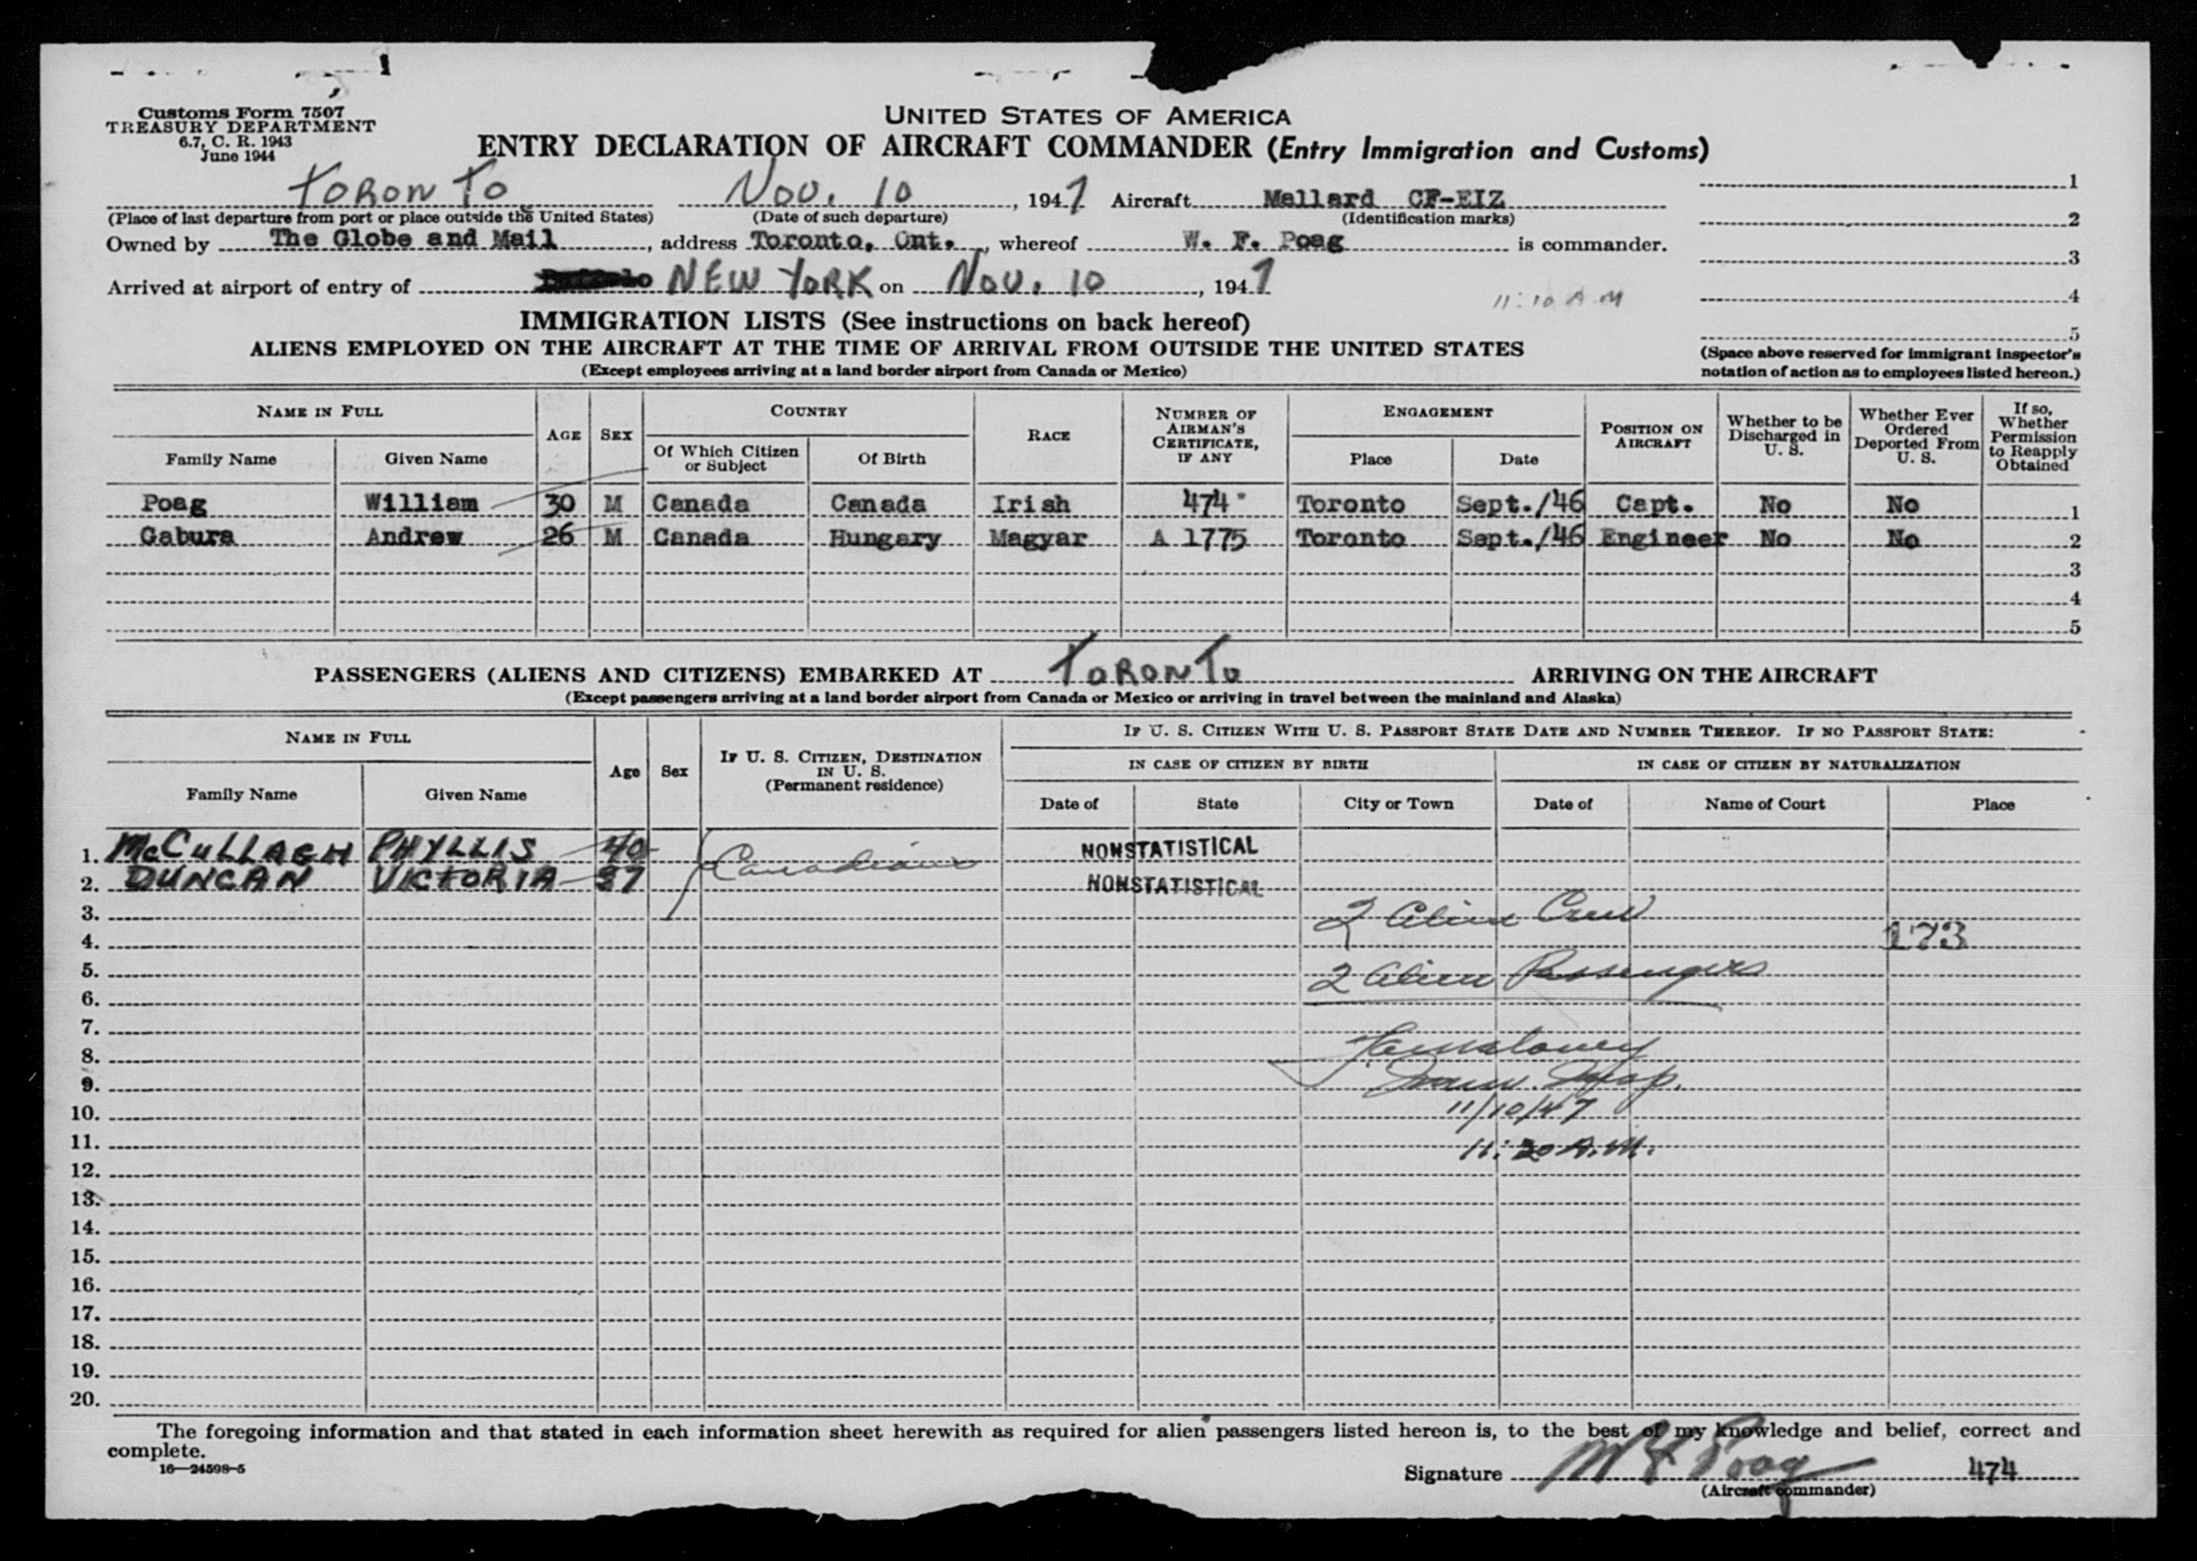 Customs Form 7507
TREASURY DEPARTMENT
6.7, C. R. 1943
June 1944
UNITED STATES OF AMERICA
ENTRY DECLARATION OF AIRCRAFT COMMANDER (Entry Immigration and Customs)
TORONTO NOV. 10, 1947 Aircraft Mallard CF-EIZ 1
(Place of last departure from port or place outside the United States) (Date of such departure) (Identification marks) 2
Owned by The Globe and Mail, address Toronto, Ont., whereof W. F. Poag is commander. 3
Arrived at airport of entry of NEW YORK on NOV. 10, 1947 11:10 A.M 4
5
IMMIGRATION LISTS (See instructions on back hereof)
ALIENS EMPLOYED ON THE AIRCRAFT AT THE TIME OF ARRIVAL FROM OUTSIDE THE UNITED STATES
(Except employees arriving at a land border airport from Canada or Mexico)
(Space above reserved for immigrant inspector's
notation of action as to employees listed hereon.)
NAME IN FULL
Family Name Given Name
AGE
SEX
COUNTRY
Of Which Citizen
or Subject
Of Birth
RACE
NUMBER OF
AIRMAN'S
CERTIFICATE,
IF ANY
ENGAGEMENT
Place Date
POSITION ON
AIRCRAFT
Whether to be
Discharged in
U. S.
Whether Ever
Ordered
Deported From
U. S.
If so,
Whether
Permission
to Reapply
Obtained
Poag William 30 M Canada Canada Irish 474 Toronto Sept./46 Capt. No No 1
Gabura Andrew 26 M Canada Hungary Magyar A 1775 Toronto Sept./46 Engineer No No 2
3
4
5
PASSENGERS (ALIENS AND CITIZENS) EMBARKED AT TORONTO ARRIVING ON THE AIRCRAFT
(Except passengers arriving at a land border airport from Canada or Mexico or arriving in travel between the mainland and Alaska)
NAME IN FULL
Family Name Given Name
Age
Sex
IF U. S. CITIZEN, DESTINATION
IN U. S.
(Permanent residence)
IF U. S. CITIZEN WITH U. S. PASSPORT STATE DATE AND NUMBER THEREOF. IF NO PASSPORT STATE:
IN CASE OF CITIZEN BY BIRTH IN CASE OF CITIZEN BY NATURALIZATION
Date of State City or Town Date of Name of Court Place
1. McCULLAGH PHYLLIS 40 Canadians NONSTATISTICAL
2. DUNCAN VICTORIA 37 NONSTATISTICAL
3. 2 Alien Crew
4. 173
5. 2 Alien Passengers
6.
7.
8.
9. Immu. Insp.
10. 11/10/47
11. 11:20 A.M.
12.
13.
14.
15.
16.
17.
18.
19.
20.
The foregoing information and that stated in each information sheet herewith as required for alien passengers listed hereon is, to the best of my knowledge and belief, correct and
complete.
16—24598-5
Signature W F Poag 474
(Aircraft commander)